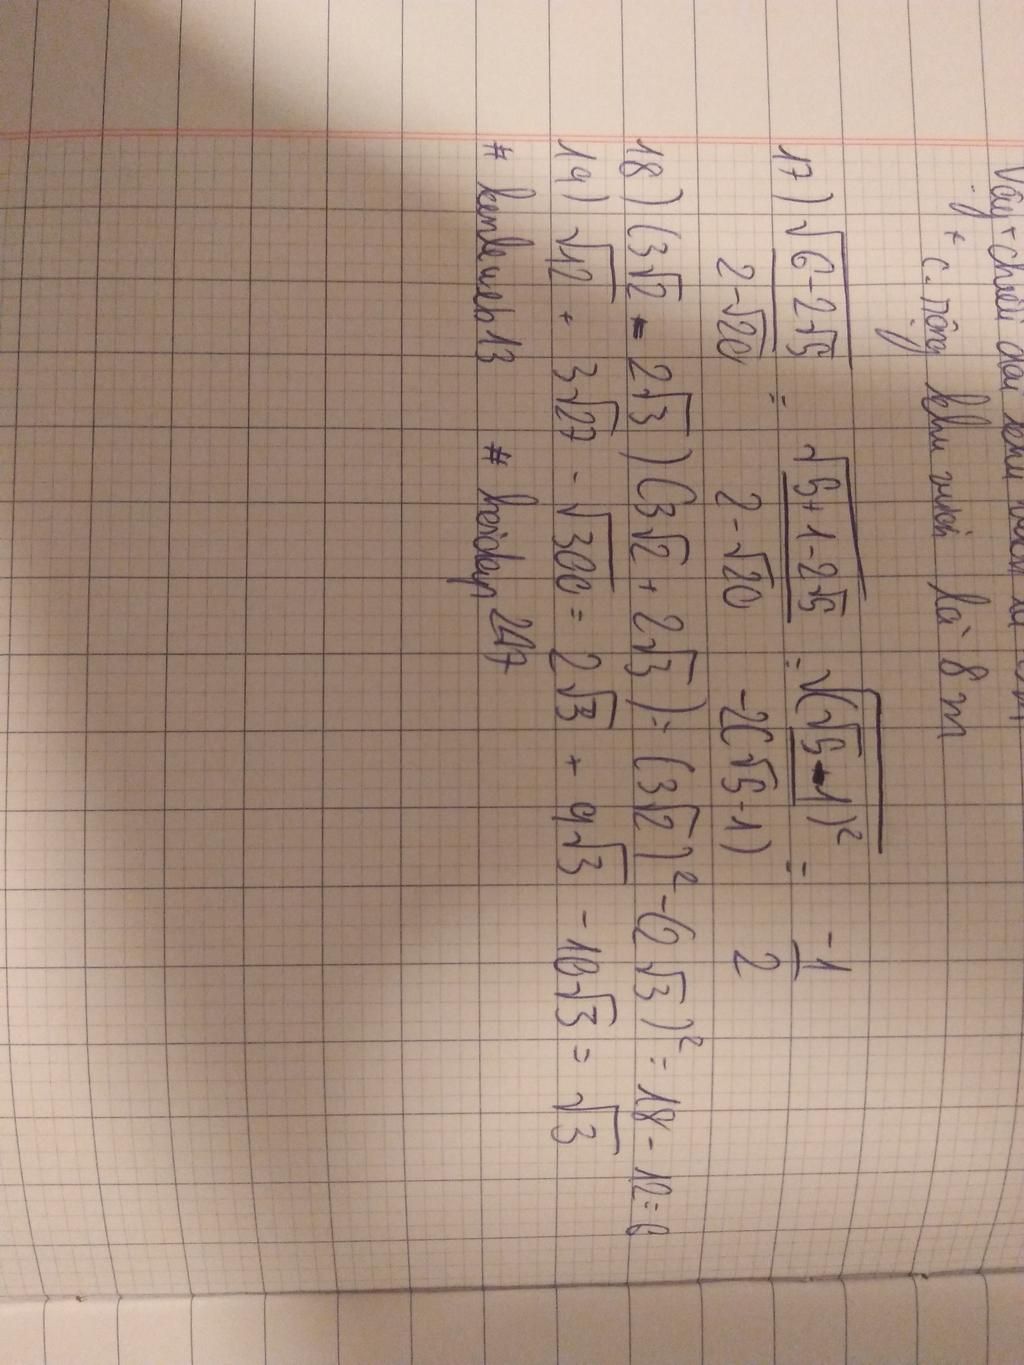 Vậy + chiều dài khu vườn là
+ c. rộng khu vườn là 8 m
17) √(6-2√5) / (2-√20) = √(5+1-2√5) / (2-√20) = √((√5-1)²) / (-2(√5-1)) = -1/2
18) (3√2 - 2√3)(3√2 + 2√3) = (3√2)² - (2√3)² = 18 - 12 = 6
19) √12 + 3√27 - √300 = 2√3 + 9√3 - 10√3 = √3
# hoidap247